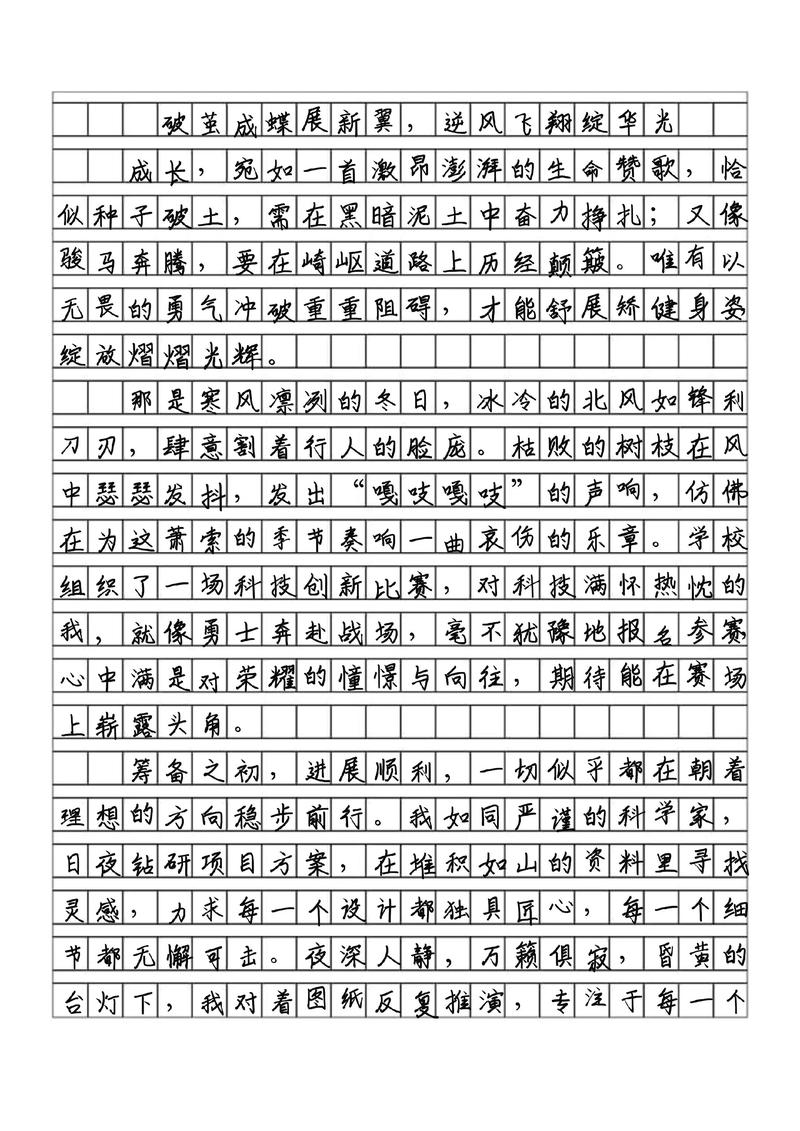 破茧成蝶展新翼，逆风飞翔绽华光
成长，宛如一首激昂澎湃的生命赞歌，恰
似种子破土，需在黑暗泥土中奋力挣扎；又像
骏马奔腾，要在崎岖道路上历经颠簸。唯有以
无畏的勇气冲破重重阻碍，才能舒展矫健身姿
绽放熠熠光辉。
那是寒风凛冽的冬日，冰冷的北风如锋利
刀刃，肆意割着行人的脸庞。枯败的树枝在风
中瑟瑟发抖，发出“嘎吱嘎吱”的声响，仿佛
在为这萧索的季节奏响一曲哀伤的乐章。学校
组织了一场科技创新比赛，对科技满怀热忱的
我，就像勇士奔赴战场，毫不犹豫地报名参赛
心中满是对荣耀的憧憬与向往，期待能在赛场
上崭露头角。
筹备之初，进展顺利，一切似乎都在朝着
理想的方向稳步前行。我如同严谨的科学家，
日夜钻研项目方案，在堆积如山的资料里寻找
灵感，力求每一个设计都独具匠心，每一个细
节都无懈可击。夜深人静，万籁俱寂，昏黄的
台灯下，我对着图纸反复推演，专注于每一个